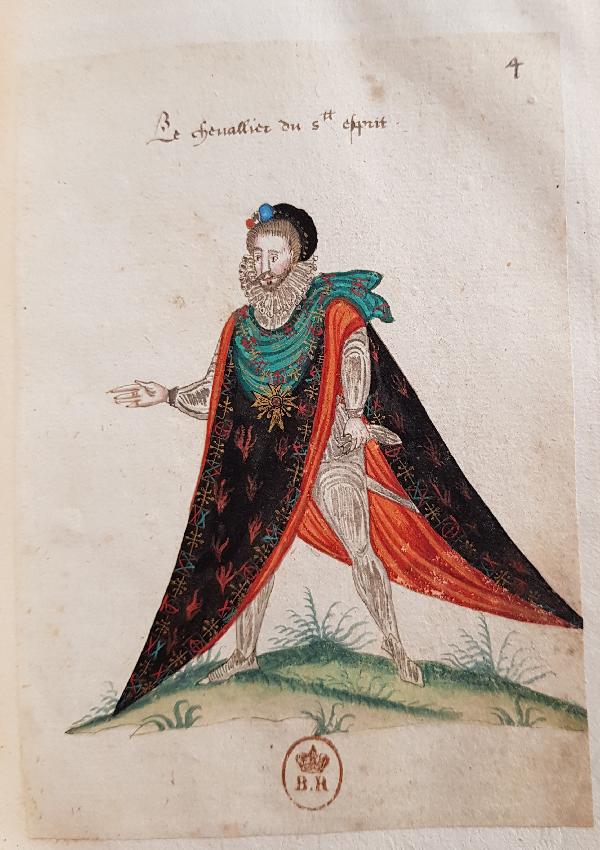 4
Le chevallier du s^tt esprit
B.R